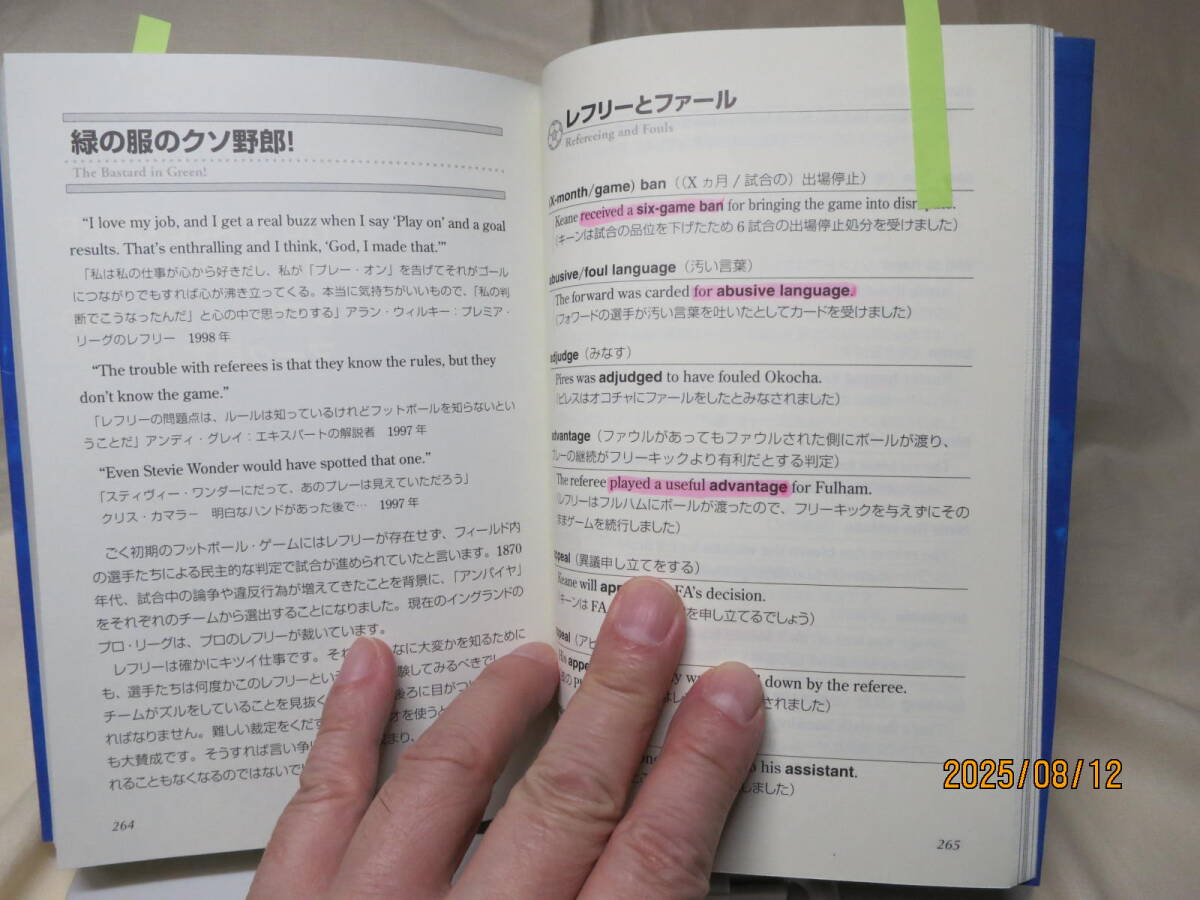 緑の服のクソ野郎!
The Bastard in Green!
“I love my job, and I get a real buzz when I say ‘Play on’ and a goal
results. That’s enthralling and I think, ‘God, I made that.’”
「私は私の仕事が心から好きだし、私が「プレー・オン」を告げてそれがゴール
につながりでもすれば心が沸き立ってくる。本当に気持ちがいいもので、「私の判
断でこうなったんだ」と心の中で思ったりする」アラン・ウィルキー：プレミア・
リーグのレフリー 1998年
“The trouble with referees is that they know the rules, but they
don’t know the game.”
「レフリーの問題点は、ルールは知っているけれどフットボールを知らないとい
うことだ」アンディ・グレイ：エキスパートの解説者 1997年
“Even Stevie Wonder would have spotted that one.”
「スティヴィー・ワンダーにだって、あのプレーは見えていただろう」
クリス・カマラー 明白なハンドがあった後で… 1997年
ごく初期のフットボール・ゲームにはレフリーが存在せず、フィールド内
の選手たちによる民主的な判定で試合が進められていたと言います。1870
年代、試合中の論争や違反行為が増えてきたことを背景に、「アンパイヤ」
をそれぞれのチームから選出することになりました。現在のイングランドの
プロ・リーグは、プロのレフリーが裁いています。
レフリーは確かにキツイ仕事です。それ なに大変かを知るために
も、選手たちは何度かこのレフリーとい 験してみるべきで
チームがズルをしていることを見抜く 後ろに目がつい
ればなりません。難しい裁定をくだす オを使うと
も大賛成です。そうすれば言い争い まり、
れることもなくなるのではないで
264
レフリーとファール
Refereeing and Fouls
(X-month/game) ban（(Xヵ月/試合の）出場停止）
Keane received a six-game ban for bringing the game into
（キーンは試合の品位を下げたため6試合の出場停止処分を受けました）
abusive/foul language（汚い言葉）
The forward was carded for abusive language.
（フォワードの選手が汚い言葉を吐いたとしてカードを受けました）
adjudge（みなす）
Pires was adjudged to have fouled Okocha.
（ピレスはオコチャにファールをしたとみなされました）
advantage（ファウルがあってもファウルされた側にボールが渡り、
プレーの継続がフリーキックより有利だとする判定）
The referee played a useful advantage for Fulham.
（レフリーはフルハムにボールが渡ったので、フリーキックを与えずにその
ままゲームを続行しました）
appeal（異議申し立てをする）
Keane will app FA’s decision.
キーンはFA を申し立てるでしょう）
appeal（アピ
His appe w down by the referee.
のP はレ されました）
his assistant.
しました）
265
2025/08/12